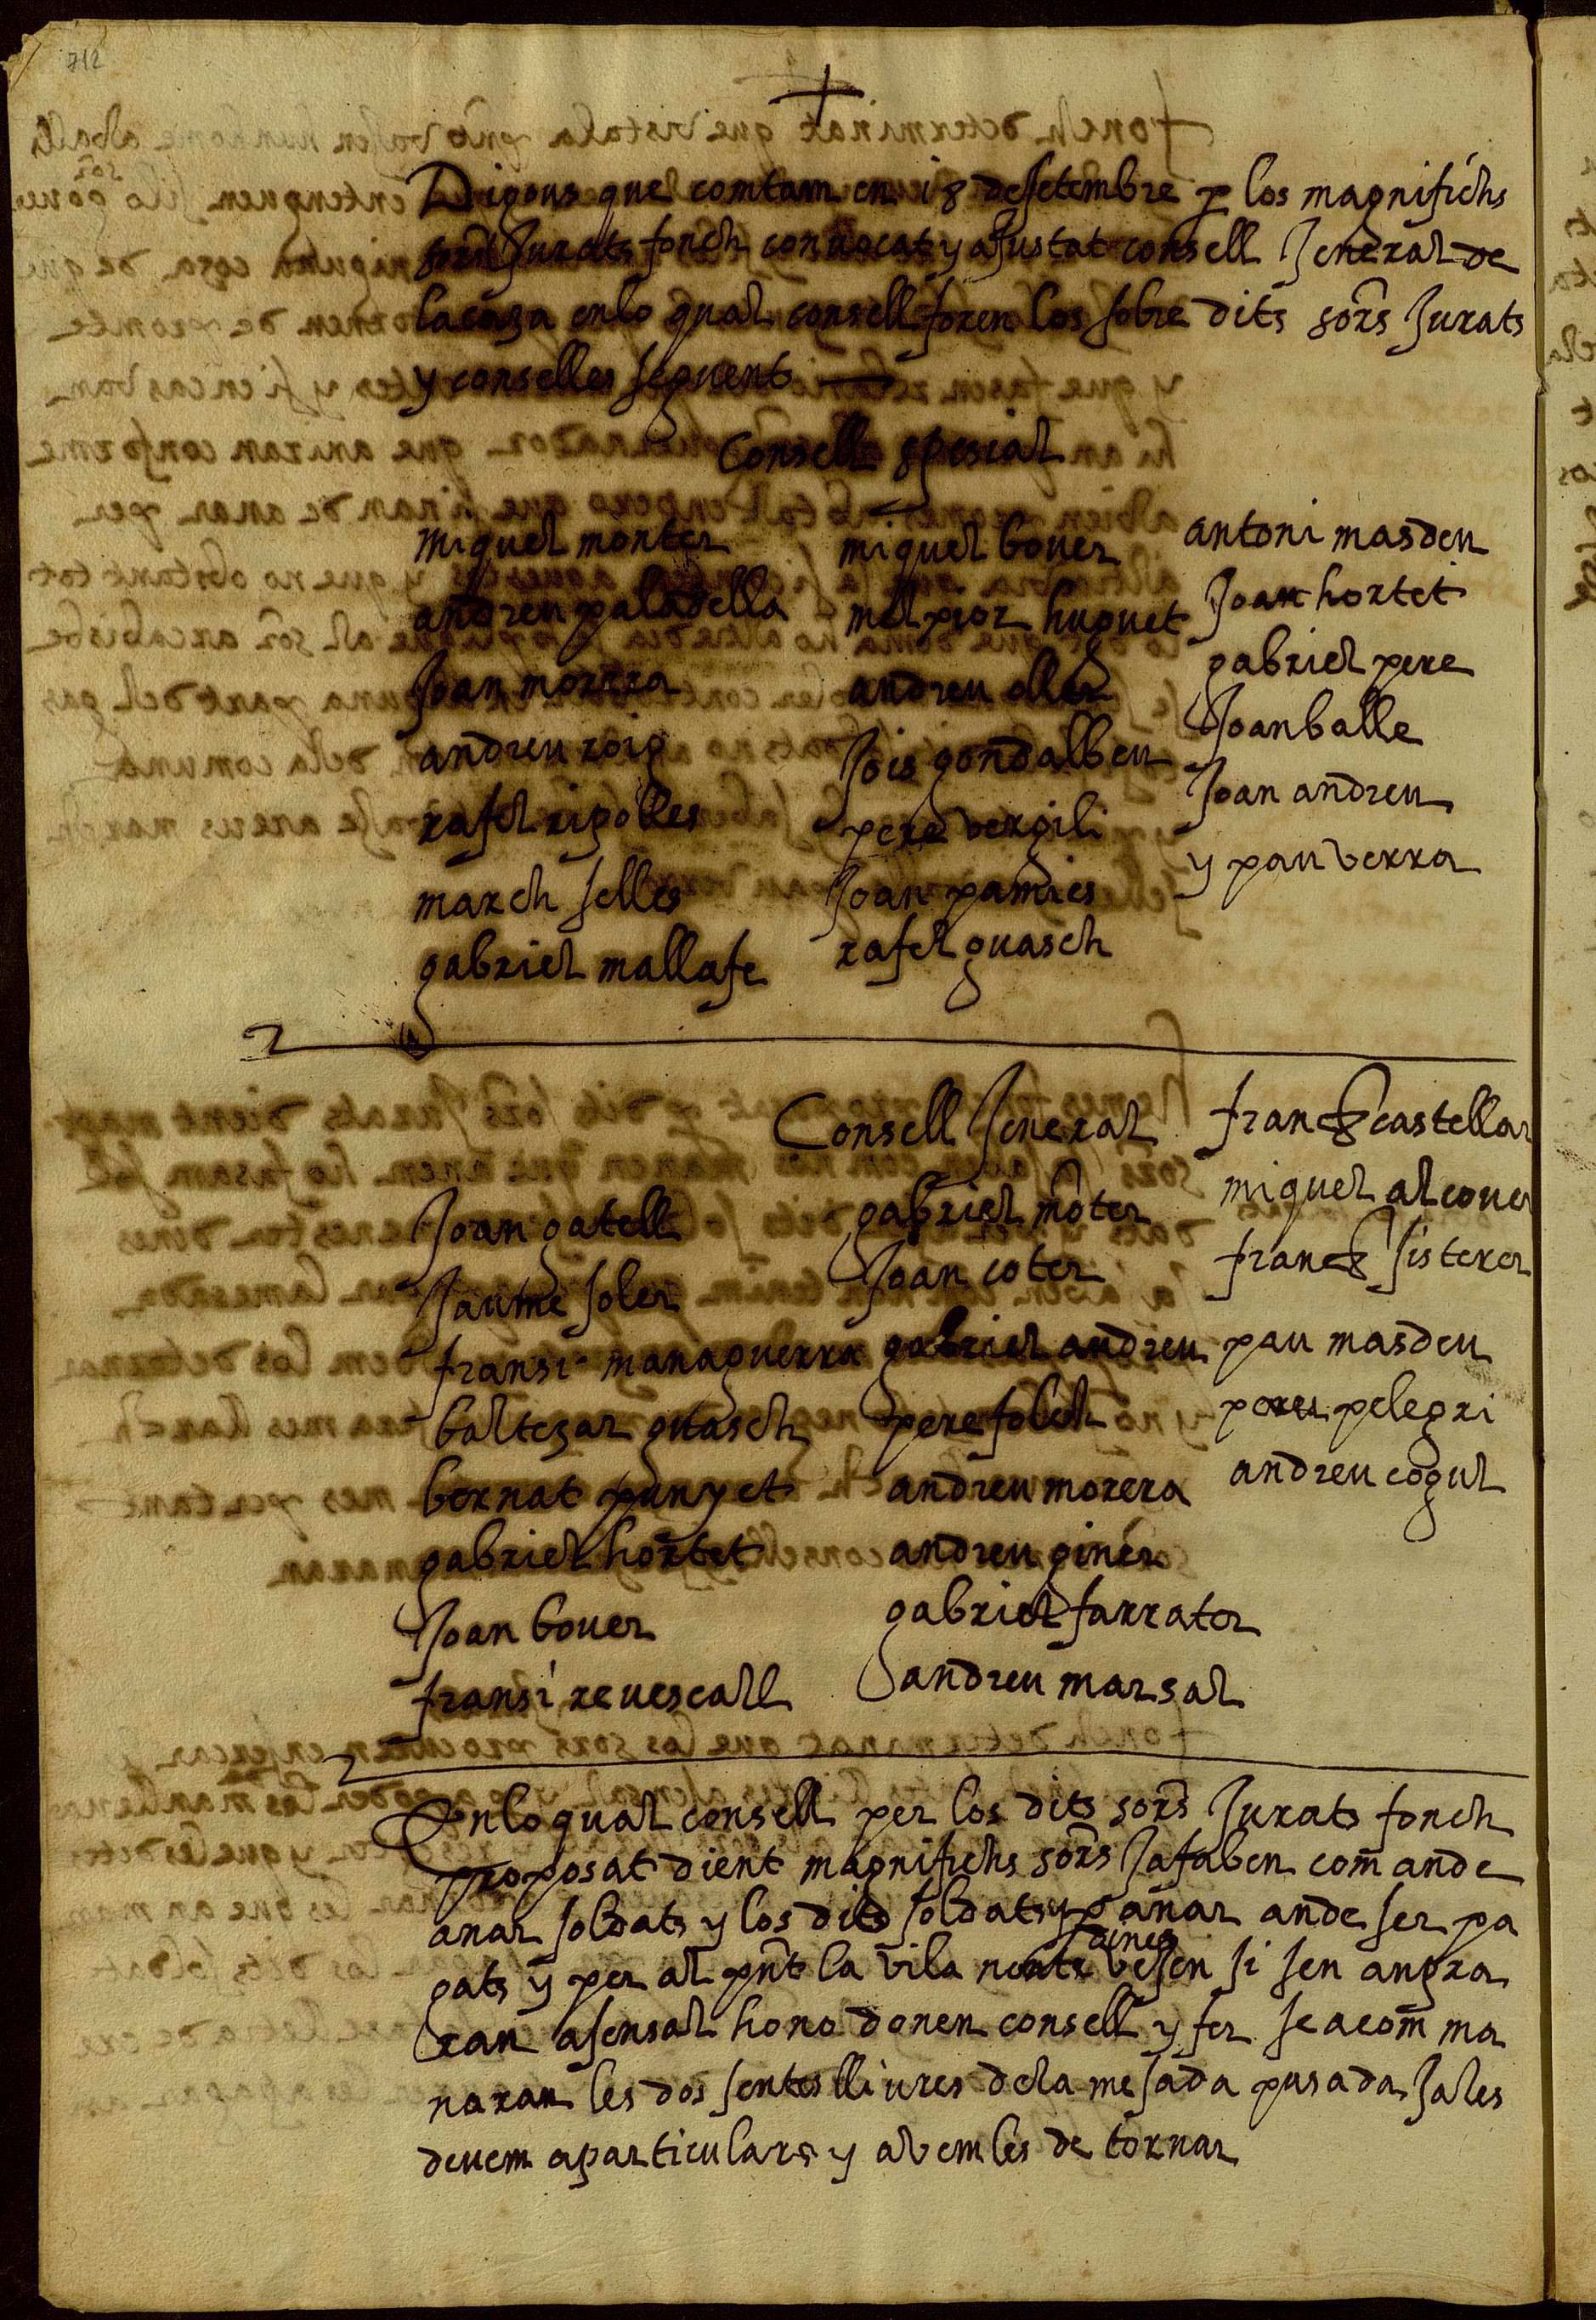 712
Digous que comtam en 18 de setembre p los magnifichs
sors Jurats fonch convocat y ajustat consell Jeneral de
la casa en lo qual consell foren los sobre dits sors Jurats
y conselles seguent
Consell spesial
miquel monter
andreu paladella
Joan morera
andreu roig
rafel ripolles
march selles
gabriel mallafe
miquel bover
melpior huguet
andreu oller
Jois gondalbeu
pere vergili
Joan pamies
rafel guasch
antoni masdeu
Joan hortet
gabriel pere
Joan balle
Joan andreu
y pau verra
Consell Jeneral
Joan gatell
Jaume soler
fransi managuerra
baltezar guasch
bernat punyet
gabriel hortet
Joan bover
fransi revescall
gabriel moter
Joan coter
gabriel andreu
pere folch
andreu morera
andreu giner
gabriel farrater
andreu marsal
castellar
miquel alcover
sisterer
pau masdeu
pere pelegri
andreu cogul
En lo qual consell per los dits sors Jurats fonch
proposat dient magnifichs sors Ja saben com an de
anar soldats y los dits soldats p anar an de ser pa
gats y per al pnt la vila no dines vesen si sen angra
ran a sensal ho no donen consell y fer se a com ma
naran les dos sentes lliures de la mesada pasada Ja les
devem a particulars y avem les de tornar